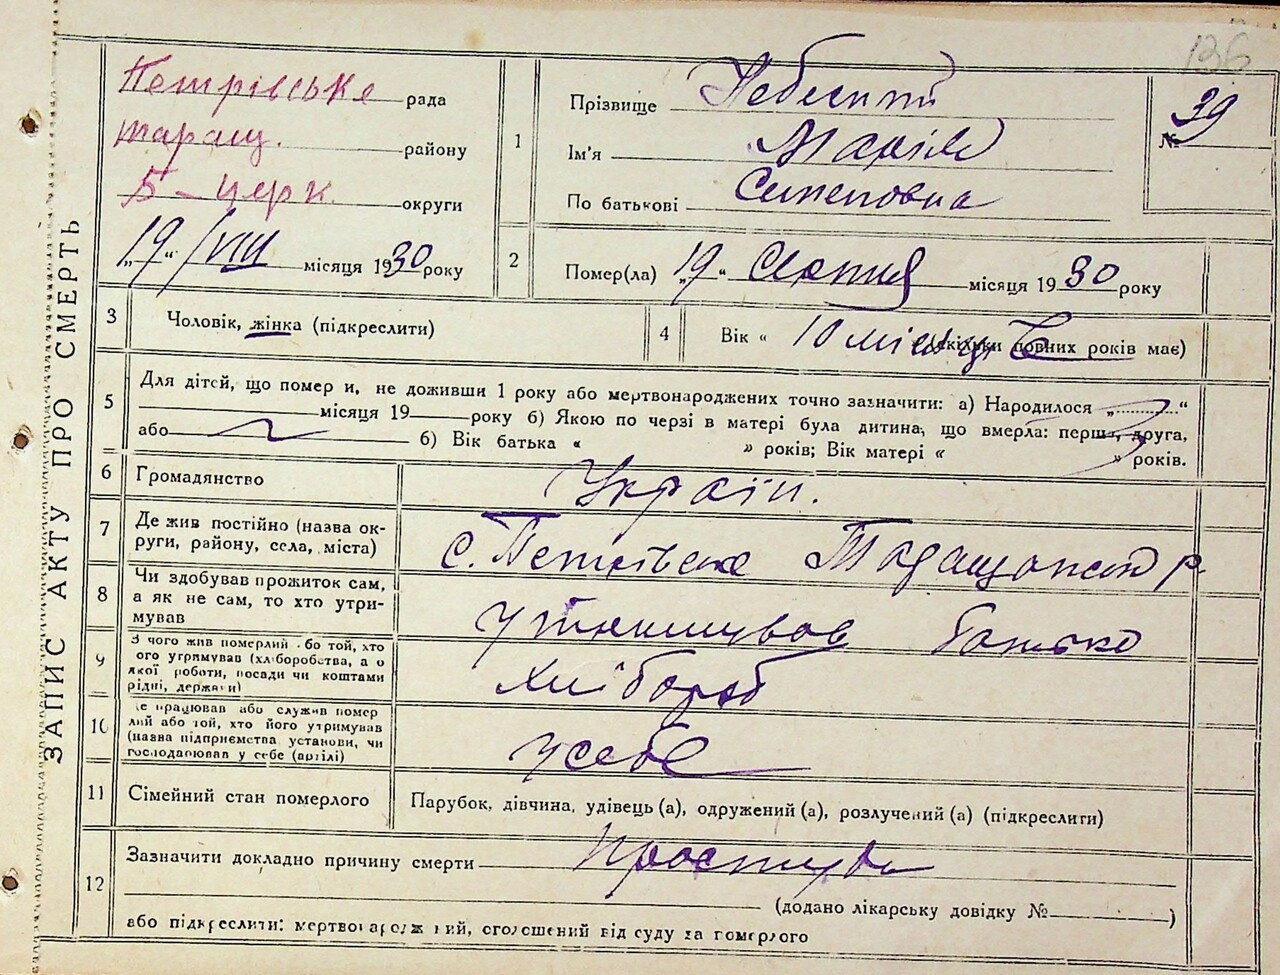 136
Петрівська рада
таращ. району
Б-церк. округи
„19“ /VIII місяця 1930 року
ЗАПИС АКТУ ПРО СМЕРТЬ
1
Прізвище Небесний
Ім'я Марія
По батькові Семеновна
№ 39
2
Помер(ла) „19“ Серпня місяця 1930 року
3
Чоловік, жінка (підкреслити)
4
Вік « 10 місяців (скільки повних років має)
5
Для дітей, що померли, не доживши 1 року або мертвонароджених точно зазначити: а) Народилося „..........“
місяця 19 року б) Якою по черзі в матері була дитина, що вмерла: перша, друга,
або б) Вік батька « » років; Вік матері « » років.
6
Громадянство
Україн.
7
Де жив постійно (назва ок-
руги, району, села, міста)
с. Петрівка Таращанськ р
8
Чи здобував прожиток сам,
а як не сам, то хто утри-
мував
утримував батько
9
З чого жив померлий або той, хто
його утримував (хліборобства, а о
якої роботи, посади чи коштами
рідні, держави)
хлібороб
10
Де працював або служив помер
лий або той, хто його утримував
(назва підприємства установи, чи
господарював у себе (артілі)
у себе
11
Сімейний стан померлого
Парубок, дівчина, удівець (а), одружений (а), розлучений (а) (підкреслити)
12
Зазначити докладно причину смерти простуда
(додано лікарську довідку № )
або підкреслити: мертвонароджений, оголошений від суду за померлого